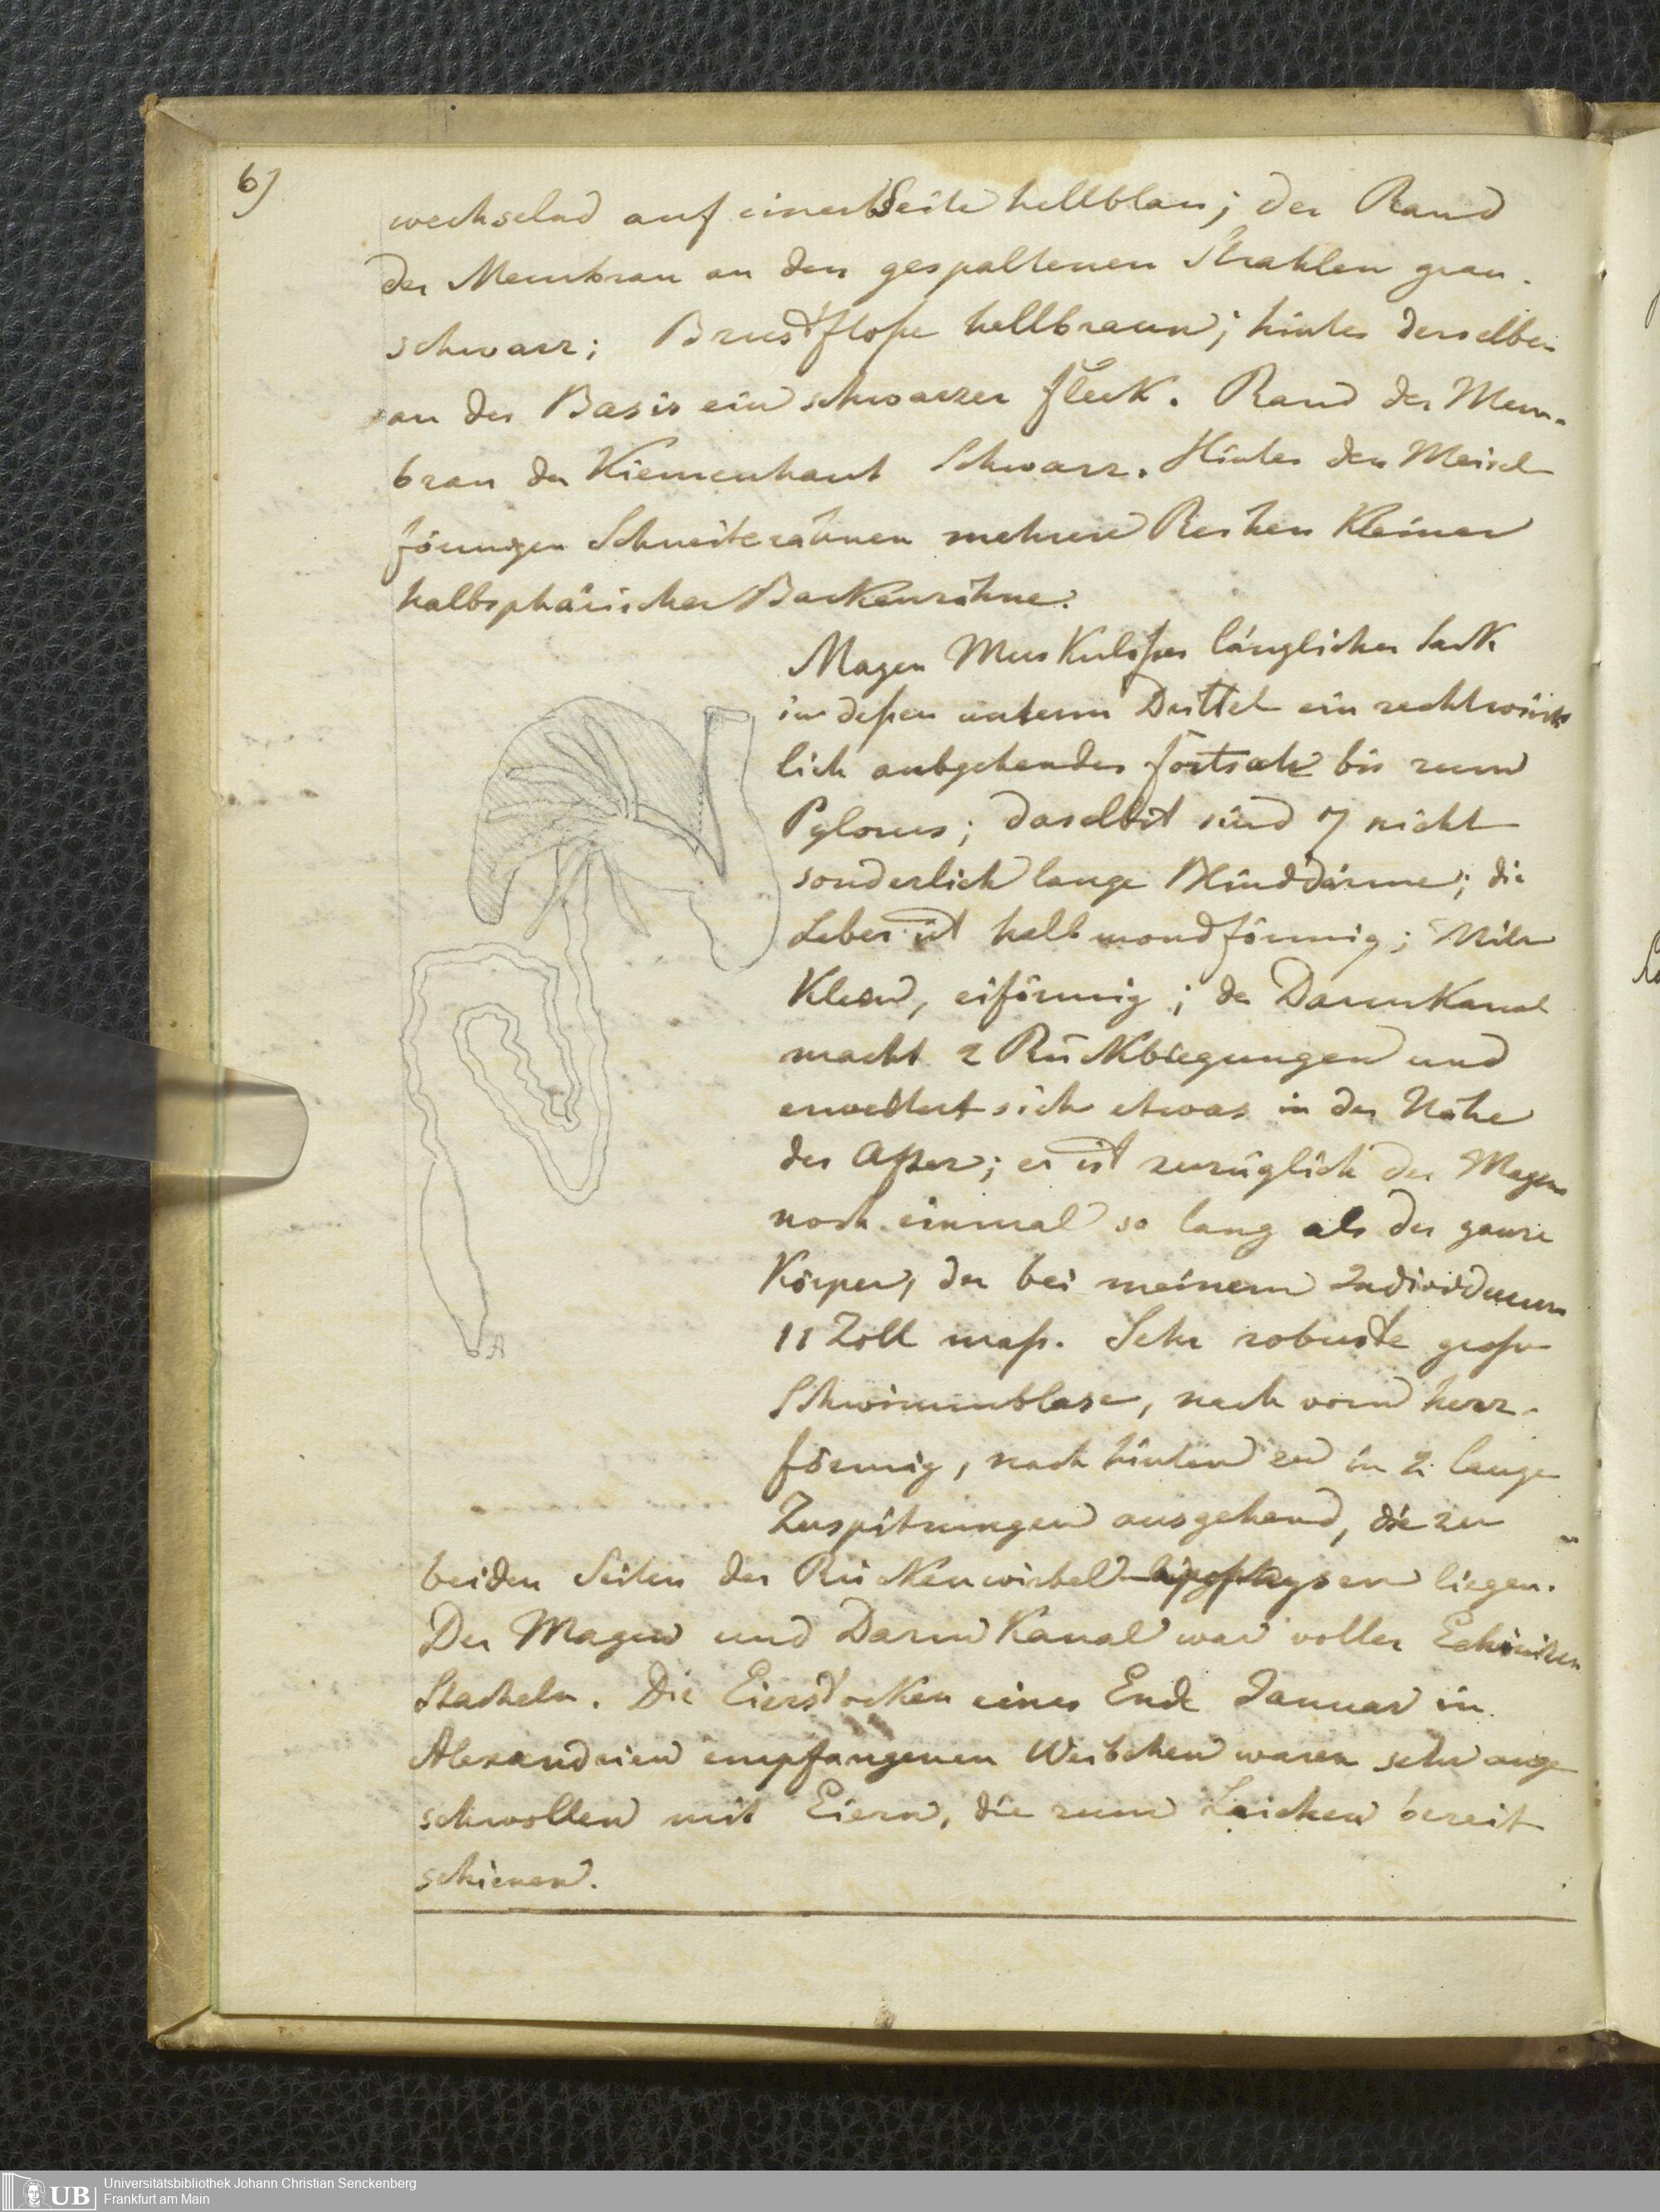 6)
wechselnd auf einer Seite hellblau; der Rand
der Membran an den gespaltenen Strahlen grau-
schwarz; Brustfloße hellbraun; hinter derselben
an der Basis ein schwarzer Fleck. Rand der Mem-
bran der Kiemenhaut Schwarz. Hinter den Meisel
förmigen Schneitezähnen mehrere Reihen kleiner
halbsphärischer Backenzähne.
Magen Muskuloser länglicher Sack
in deßen unterm Drittel ein rechtwink
lich aubgehender Fortsatz bis zum
Pylorus; daselbst sind 7 nicht
sonderlich lange Blinddärme; die
Leber ist halb mondförmig; Milz
Klein, eiförmig; der Darmkanal
macht 2 Rückbiegungen und
erweitert sich etwas in der Nähe
des After; er ist zuzüglich des Magens
noch einmal so lang als der ganze
Körper, der bei meinem Individuum
11 Zoll maß. Sehr robuste große
Schwimmblase, nach vorn herz-
förmig, nach hinten zu in 2 lange
Zuspitzungen ausgehend, die zu
beiden Seiten der Rückenwirbel liegen.
Der Magen und Darm Kanal war voller Echiniten
Stacheln. Die Eierstocken eines Ende Januar in
Alexandrien empfangenen Weibchen waren sehr ange
schwollen mit Eiern, die zum Laichen bereit
schienen.
A
UB
Universitätsbibliothek Johann Christian Senckenberg
Frankfurt am Main